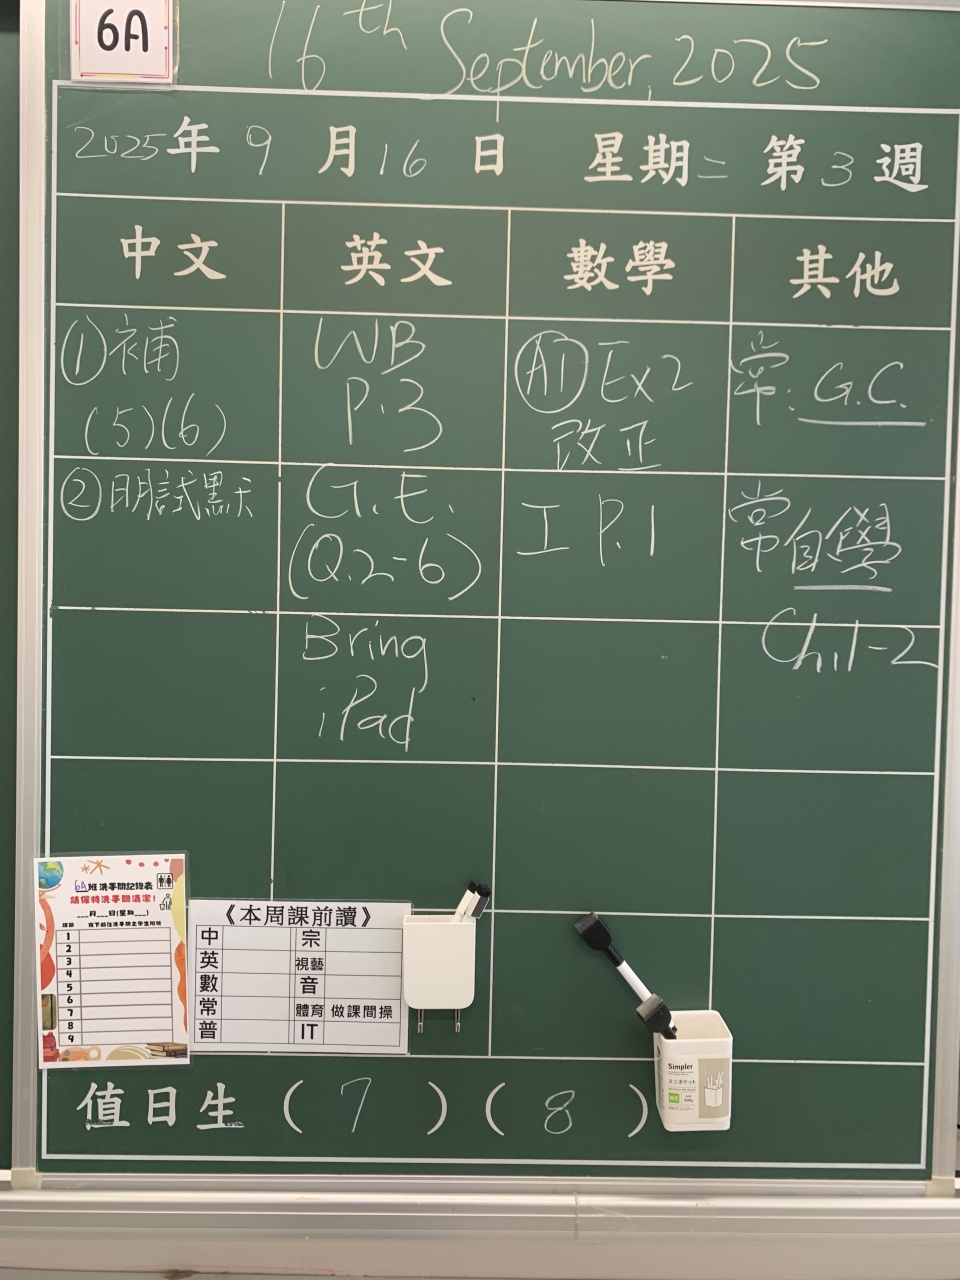 6A
16th September, 2025
2025年9月16日 星期二 第3週
中文 英文 數學 其他
①補
(5)(6)
②明試默
WB
P.3
G.E.
(Q.2-6)
Bring
iPad
A1 Ex2
改正
工 P.1
常: G.C.
常自學
Ch.1-2
6A班洗手間記錄表
請保持洗手間清潔!
___月___日(星期___)
1
2
3
4
5
6
7
8
9
《本周課前讀》
中 宗
英 視藝
數 音
常 體育 做課間操
普 IT
Simpler
ミニポケット
值日生 (7) (8)